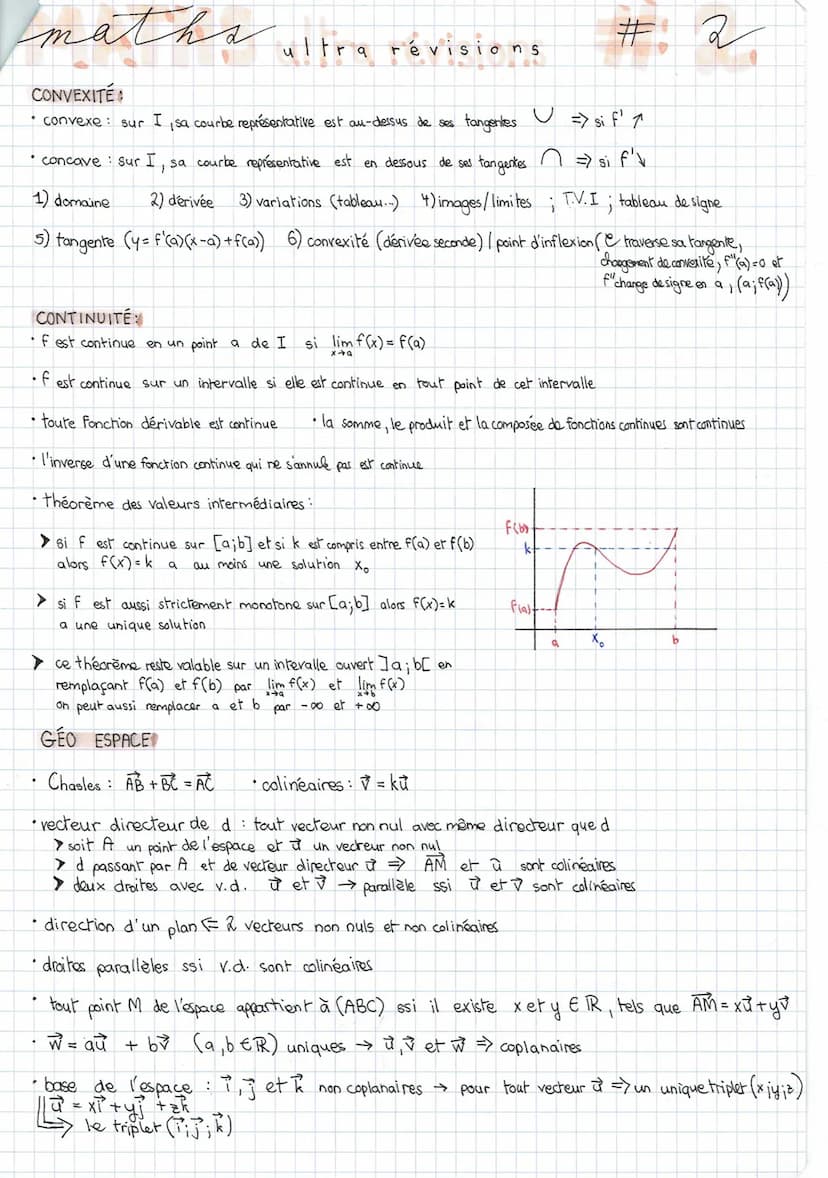 maths ultra révisions #: 2
CONVEXITÉ :
• convexe : sur I, sa courbe représentative est au-dessus de ses tangentes ∪ => si f' ↗
• concave : sur I, sa courbe représentative est en dessous de ses tangentes ∩ => si f' ↘
1) domaine 2) dérivée 3) variations (tableau...) 4) images/limites ; T.V.I ; tableau de signe
5) tangente (y = f'(a)(x-a) + f(a)) 6) convexité (dérivée seconde) / point d'inflexion (C traverse sa tangente,
changement de convexité, f''(a)=0 et
f'' change de signe en a, (a;f(a)))
CONTINUITÉ :
• f est continue en un point a de I si lim f(x) = f(a)
x→a
• f est continue sur un intervalle si elle est continue en tout point de cet intervalle
• toute fonction dérivable est continue • la somme, le produit et la composée de fonctions continues sont continues
• l'inverse d'une fonction continue qui ne s'annule pas est continue
• théorème des valeurs intermédiaires :
➤ si f est continue sur [a;b] et si k est compris entre f(a) et f(b)
alors f(x)=k a au moins une solution x₀
➤ si f est aussi strictement monotone sur [a;b] alors f(x)=k
a une unique solution
➤ ce théorème reste valable sur un intevalle ouvert ]a;b[ en
remplaçant f(a) et f(b) par lim f(x) et lim f(x)
x→a x→b
on peut aussi remplacer a et b par -∞ et +∞
f(b)
k
f(a)
a x₀ b
GÉO ESPACE
• Chasles : A͞B + B͞C = A͞C • colinéaires : v⃗ = ku⃗
• vecteur directeur de d : tout vecteur non nul avec même directeur que d
➤ soit A un point de l'espace et u⃗ un vecteur non nul
➤ d passant par A et de vecteur directeur u⃗ => AM⃗ et u⃗ sont colinéaires
➤ deux droites avec v.d. u⃗ et v⃗ → parallèle ssi u⃗ et v⃗ sont colinéaires
• direction d'un plan <= 2 vecteurs non nuls et non colinéaires
• droites parallèles ssi v.d. sont colinéaires
• tout point M de l'espace appartient à (ABC) ssi il existe x et y ∈ ℝ, tels que AM⃗ = xu⃗ + yv⃗
• w⃗ = au⃗ + bv⃗ (a, b ∈ ℝ) uniques → u⃗, v⃗ et w⃗ => coplanaires
• base de l'espace : i⃗, j⃗ et k⃗ non coplanaires → pour tout vecteur u⃗ => un unique triplet (x;y;z)
u⃗ = xi⃗ + yj⃗ + zk⃗
=> le triplet (i⃗; j⃗; k⃗)